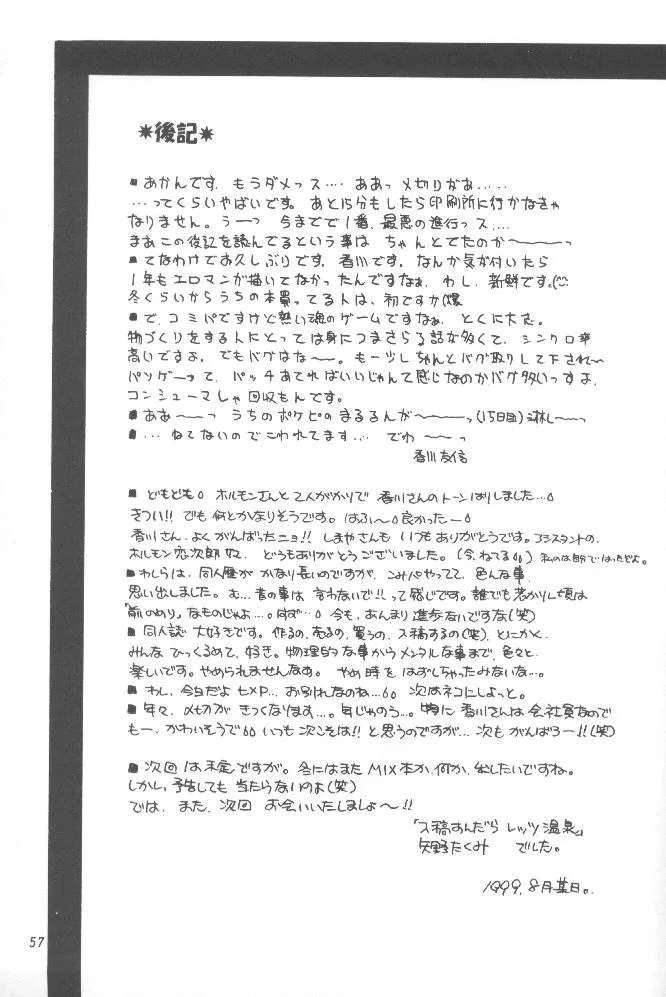 ✷後記✷
■あかんです。もうダメっス…. ああっ〆切りがぁ.....
…ってくらいやばいです。あと15分もしたら印刷所に行かなきゃ
なりません。うーっ 今までで1番、最悪の進行っス….
まあこの後記を読んでるという事は ちゃんとでたのか〜〜〜っ
■てなわけでお久しぶりです。香川です。なんか気が付いたら
1年もエロマンガ描いてなかったんですなぁ。わし。新鮮です。
冬くらいからうちの本買ってる人は、初ですか(爆
■で、コミパですけど熱い魂のゲームですなぁ。とくに大む。
物づくりをする人にとっては身につまさらる話が多くて、シンクロ率
高いですよ。でもバグはな〜〜。もーつしちゃんとバグ取りして下され〜
パソゲーって、パッチあてればいいじゃんて感じなのかバグ多いっすよ。
コンシューマしゃ回収もんです。
■ああ〜〜っ うちのポケピのまるるんが〜〜〜っ(15日目)淋し〜〜っ
■…ねてないのでこわれてます… でわ 〜〜っ
香川友信
■どもども。ホルモンさんと2人がかりで香川さんのトーンはりしました…。
きつい!! でも何とかなりそうです。はふぃ〜。良かったー。
香川さん、よくがんばったニョ!! しまやさんも いつもありがとうです。アシスタントの、
ホルモン恋次郎 どうもありがとうございました。(今、ねてる。。) 私のは自分ではったどよ。
■わしらは、同人歴が かなり長いのですが、こみパやってて、色んな事、
思い出しました。む…昔の事は言わないで!! って感じです。誰でも若かりし頃は
「前のめり」なものじゃよ…。はず…。今も、あんまり進歩ないですな(笑)
■同人誌 大好きです。作るの、売るの、買うの、入稿するの(笑)とにかく、
みんな ひっくるめて、好き。物理的な事からメンタルな事まで、色々と
楽しいです。やめられませんなあ。やめ時を はずしちゃったみないな…。
■わし、今日だよ EXP… お別れなのね…。。次はネコにしよっと。
■年々、〆切が きつくなります…。年じゃのう…。特に香川さんは会社員なので
もー、かわいそうで。。いつも次こそは!! と思うのですが… 次もがんばろー!! (笑)
■次回は未定ですが。冬にはまたMIX本か、何か、出したいですね。
しかし、予告しても 当たらないのよ(笑)
では、また、次回 お会いいたしましょ〜!!
「入稿すんだら レッツ温泉」
矢野たくみ でした。
1999.8月某日。
57